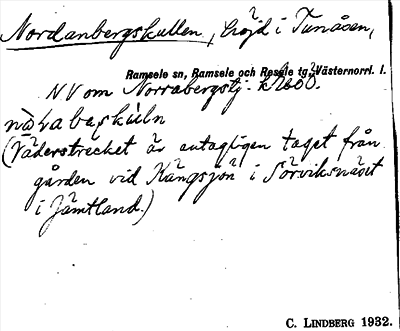 Nordanbergskullen, höjd i Tunåsen,
Ramsele sn, Ramsele och Resele tg, Västernorrl. l.
NV om Norrabergstj.
(Väderstrecket är antagligen taget från
gården vid Kångsjön i Sörviksnäset
i Jämtland.)
C. LINDBERG 1932.